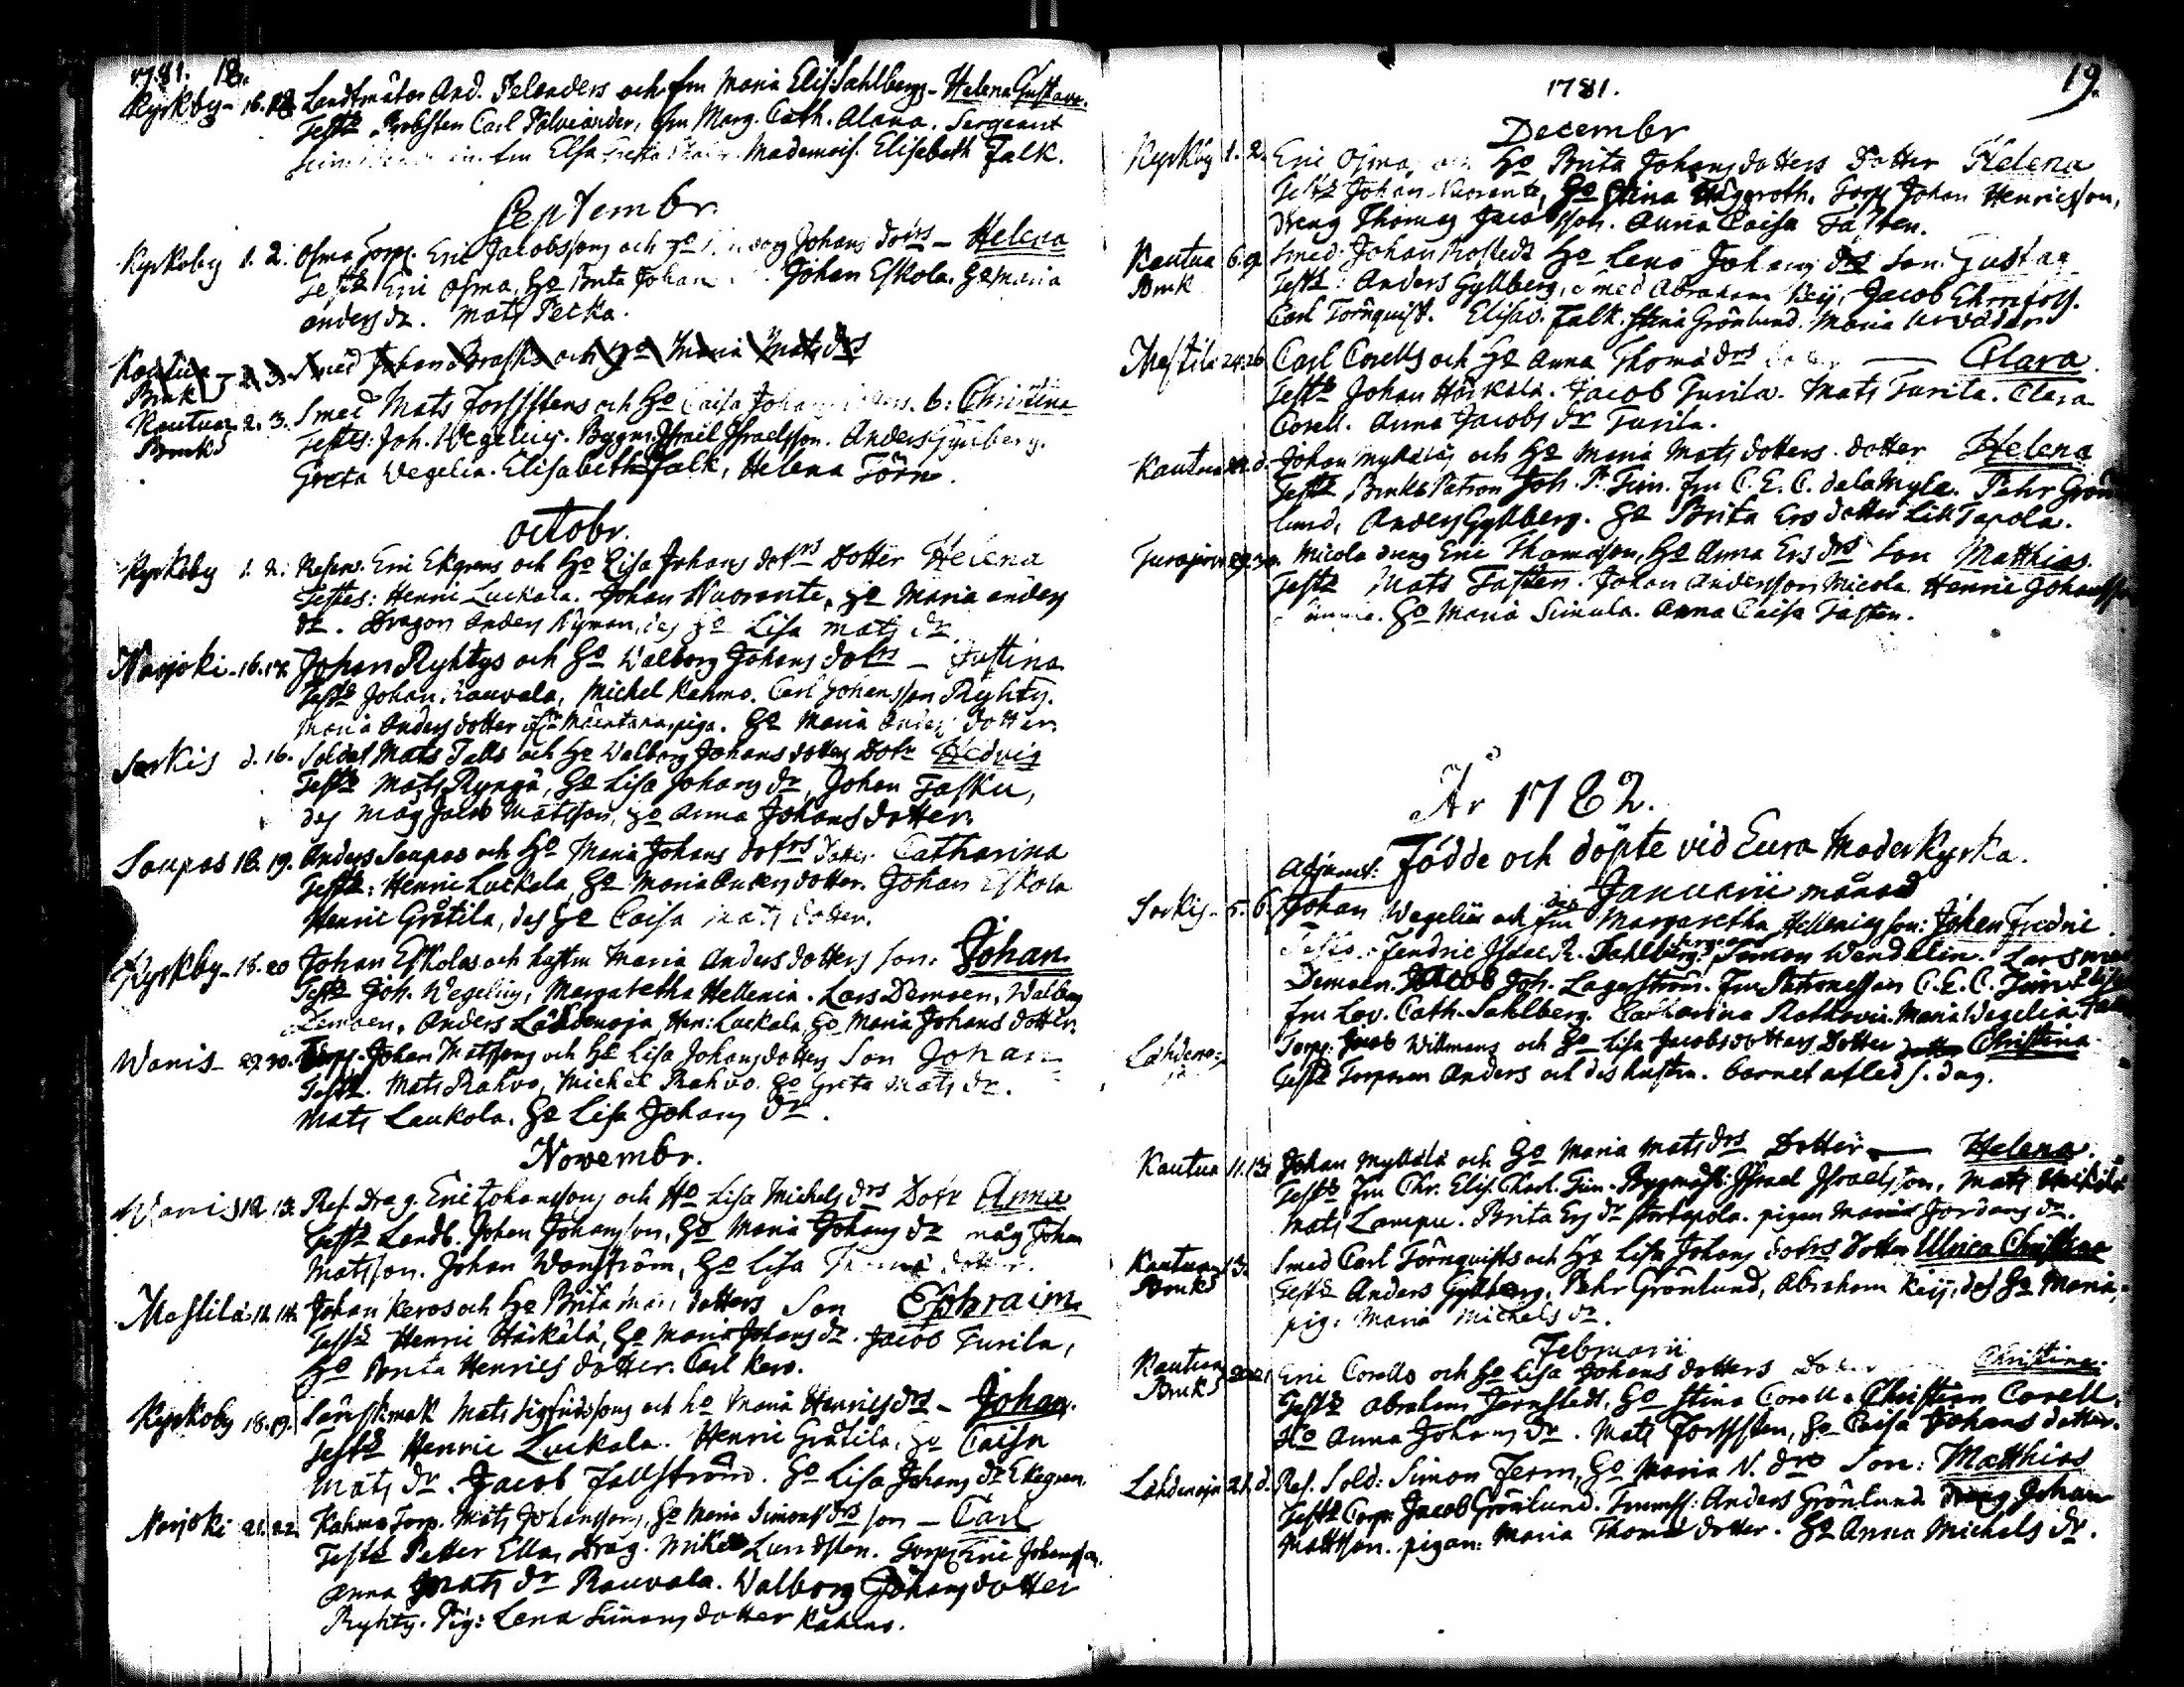 1781. 18.
Kyrkby 16. 18 Landtmätar And. Telenders och fru Maria Elis. Sahlbergs - Helena Gustava.
Test: Probsten Carl Polviander, fru Marg. Cath. Alana. Sergeant
fru Elsa Mademois. Elisabeth Falk.
Septembr.
Kyrkoby 1. 2. Osma Torp. Eric Jacobssons och Ho Johans dotrs - Helena
Test: Eric Osma, Ho Brita Johan Johan Eskola. Ho Maria
anders dr. Mats Pecka.
Kautua Bruk 2. 3. Smed Johan Brasks och Ho Maria Mats drs
Kautua Bruks 2. 3. Smed Mats Forsstens och Ho Caisa Johans b: Christina
Testes: Joh. Wegelius. Bygm. Israel Israelsson. Anders Gyllberg.
Greta Wegelia. Elisabeth Falk, Helena Törn.
octobr.
Kyrkoby 1. 2. Refsw. Eric Ekgrens och Ho Lisa Johans dotrs Dotter Helena
Testes: Henric Luckala. Johan Nuorante, Ho Maria anders
dr. Dragon Anders Nyman, des Ho Lisa Mats dr.
Narjoki 16. 17. Johan Ryhtys och Ho Walborg Johans dotrs - Justina
Test: Johan Rauvala, Michel Kahmo. Carl Johansson Ryhty.
Maria Anders dotter piga. Ho Maria Anders dotter.
Sorkis d. 16. Soldat Mats Talls och Ho Walborg Johans dotters Dotr Hedvig
Test: Mats Ryngä, Ho Lisa Johans dr, Johan Tasku,
des måg Jacob Matsson, Ho Anna Johans dotter.
Soupas 18. 19. Anders Soupas och Ho Maria Johans dotrs dotter Catharina
Test: Henric Luckala Ho Maria Anders dotter. Johan Eskola
Henric Gråtila, des Ho Caisa Mats dotter.
Kyrkby 18. 20 Johan Eskolas och hustru Maria Anders dotters son. Johan
Test: Joh. Wegelius, Margaretha Hellenia. Lars Demoen, Walborg
Demoen, Anders Lähdenoja, Hen: Luckala, Ho Maria Johans dotter.
Wanis 29. 30. Torp. Johan Matssons och Ho Lisa Johans dotters Son Johan
Test: Mats Rahvo, Michel Rahvo. Ho Greta Mats dr.
Mats Laukola. Ho Lisa Johans dr.
Novembr.
Wanis 12. 13. Ref. Drag. Eric Johanssons och Ho Lisa Michels drs Dotr Anna
Test: Landb. Johan Johansson, Ho Maria Johans dr måg Johan
Matsson. Johan Wanström, Ho Lisa Thomæ dotter.
Mestilä 12. 14. Johan Keros och Ho Brita Mats dotters Son Ephraim.
Test: Henric Häikälä, Ho Maria Johans dr. Jacob Turila,
Ho Brita Henrics dotter. Carl Kero.
Kyrkoby 18. 19. Mats Sigfridssons och ho Maria Henrics drs - Johan.
Test: Henric Luckala. Henric Gråtila, Ho Caisa
Mats dr. Jacob Fallström. Ho Lisa Johans dr Ekegren.
Narjoki 21. 22. Kahmo Torp. Mats Johanssons, Ho Maria Simons drs son - Carl
Test: Petter Ellas, Drag. Michel Lundsten. Torp. Eric Johansson.
Anna Mats dr Rauvala. Walborg Johans dotter
Ryhty. Pig: Lena Simons dotter Kahmo.
19.
1781.
Decembr
Kyrkby 1. 2. Eric Osma och Ho Brita Johans dotters Dotter Helena
Test: Johan Nuorante, Ho Stina Häggroth. Torp. Johan Henricsson,
dreng Thomas Jacobsson. Anna Caisa Fasten.
Kautua Bruk 6. 9. Smed Johan Rostedt Ho Leno Johans drs Son. Gustav
Test: Anders Gyllberg, Smed Abraham Keij, Jacob Ehrnfors.
Carl Törnquist. Elisab. Falk. Stina Grönlund. Maria
Mestilä 24. 26. Carl Corells och Ho Anna Thomæ drs Clara.
Test: Johan Häikälä. Jacob Turila. Mats Turila. Clara
Corell. Anna Jacobs dr Turila.
Kautua d. Johan Myllälä och Ho Maria Mats dotters. dotter Helena
Test: Bruks Patron Joh. P. Timm. fru C. E. C. dela Myle. Pehr Grön-
lund, Anders Gyllberg. Ho Brita Ers dotter Lill Tapola.
Turajärvi 29. 30. Micola dreng Eric Thomasson, Ho Anna Ers drs Son Matthias.
Test: Mats Fasten. Johan Andersson Micola. Henric Johansson
Ho Maria Simula. Anna Caisa Fasten.
År 1782.
Adjunct: Födde och döpte vid Eura Moderkyrka.
Januarii månad
Sorkis 5. 6. Johan Wegelius och fru Margaretha Hellenias son: Johan Fredric.
Test: Fendric Isaac R. Sahlberg, Simon Wendelin. Lars
Demoen. Joh. Lagerström. Fru Patronessan C. E. C. Timm
fru Lov. Cath. Sahlberg. Catharina Rothovia. Maria Wegelia
Lähdenoja Torp. Jacob Willmans och Ho Lisa Jacobs dotters Dotter Christina
Test: Torparen Anders och des hustru. barnet afled s. dag.
Kautua 11. 13. Johan Myllälä och Ho Maria Mats drs Dotter Helena.
Test: Fru Chr. Elis. Charl. Timm. Bygmäst: Israel Israelsson, Mats
Mats Lampu. Brita Ers dr Stortapola. pigan Maria Jordans dr.
Kautua Bruks 13. Smed Carl Törnquists och Ho Lisa Johans dotrs Dotter Ulrica Christina
Test: Anders Gyllberg, Pehr Grönlund, Abraham Keij, des Ho Maria,
pig. Maria Michels dr.
Februarii
Kautua Bruks 20. 21 Eric Corells och Ho Lisa Johans dotters Dotter Christina.
Test: Abraham Jernstedt, Ho Stina Corell. Christian Corell,
Ho Anna Johans dr. Mats Forssten, Ho Caisa Johans dotter.
Lähdenoja 21. d. Ref. Sold: Simon Ferm, Ho Maria N. drs Son: Matthias
Test: Corp. Jacob Grönlund. Trumsl: Anders Grönlund dreng Johan
Mattsson. pigan: Maria Thomæ dotter. Ho Anna Michels dr.